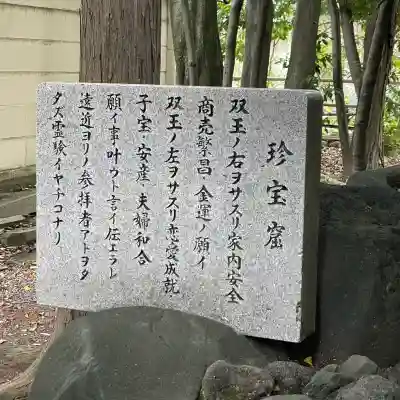 珍宝窟
双玉ノ右ヲサスリ家内安全
商売繁昌・金運ノ願イ
双玉ノ左ヲサスリ恋愛成就・
子宝・安産・夫婦和合
願イ事・叶ウト言イ伝エラレ
遠近ヨリノ参拝者アトヲタ
タズ霊験イヤチコナリ